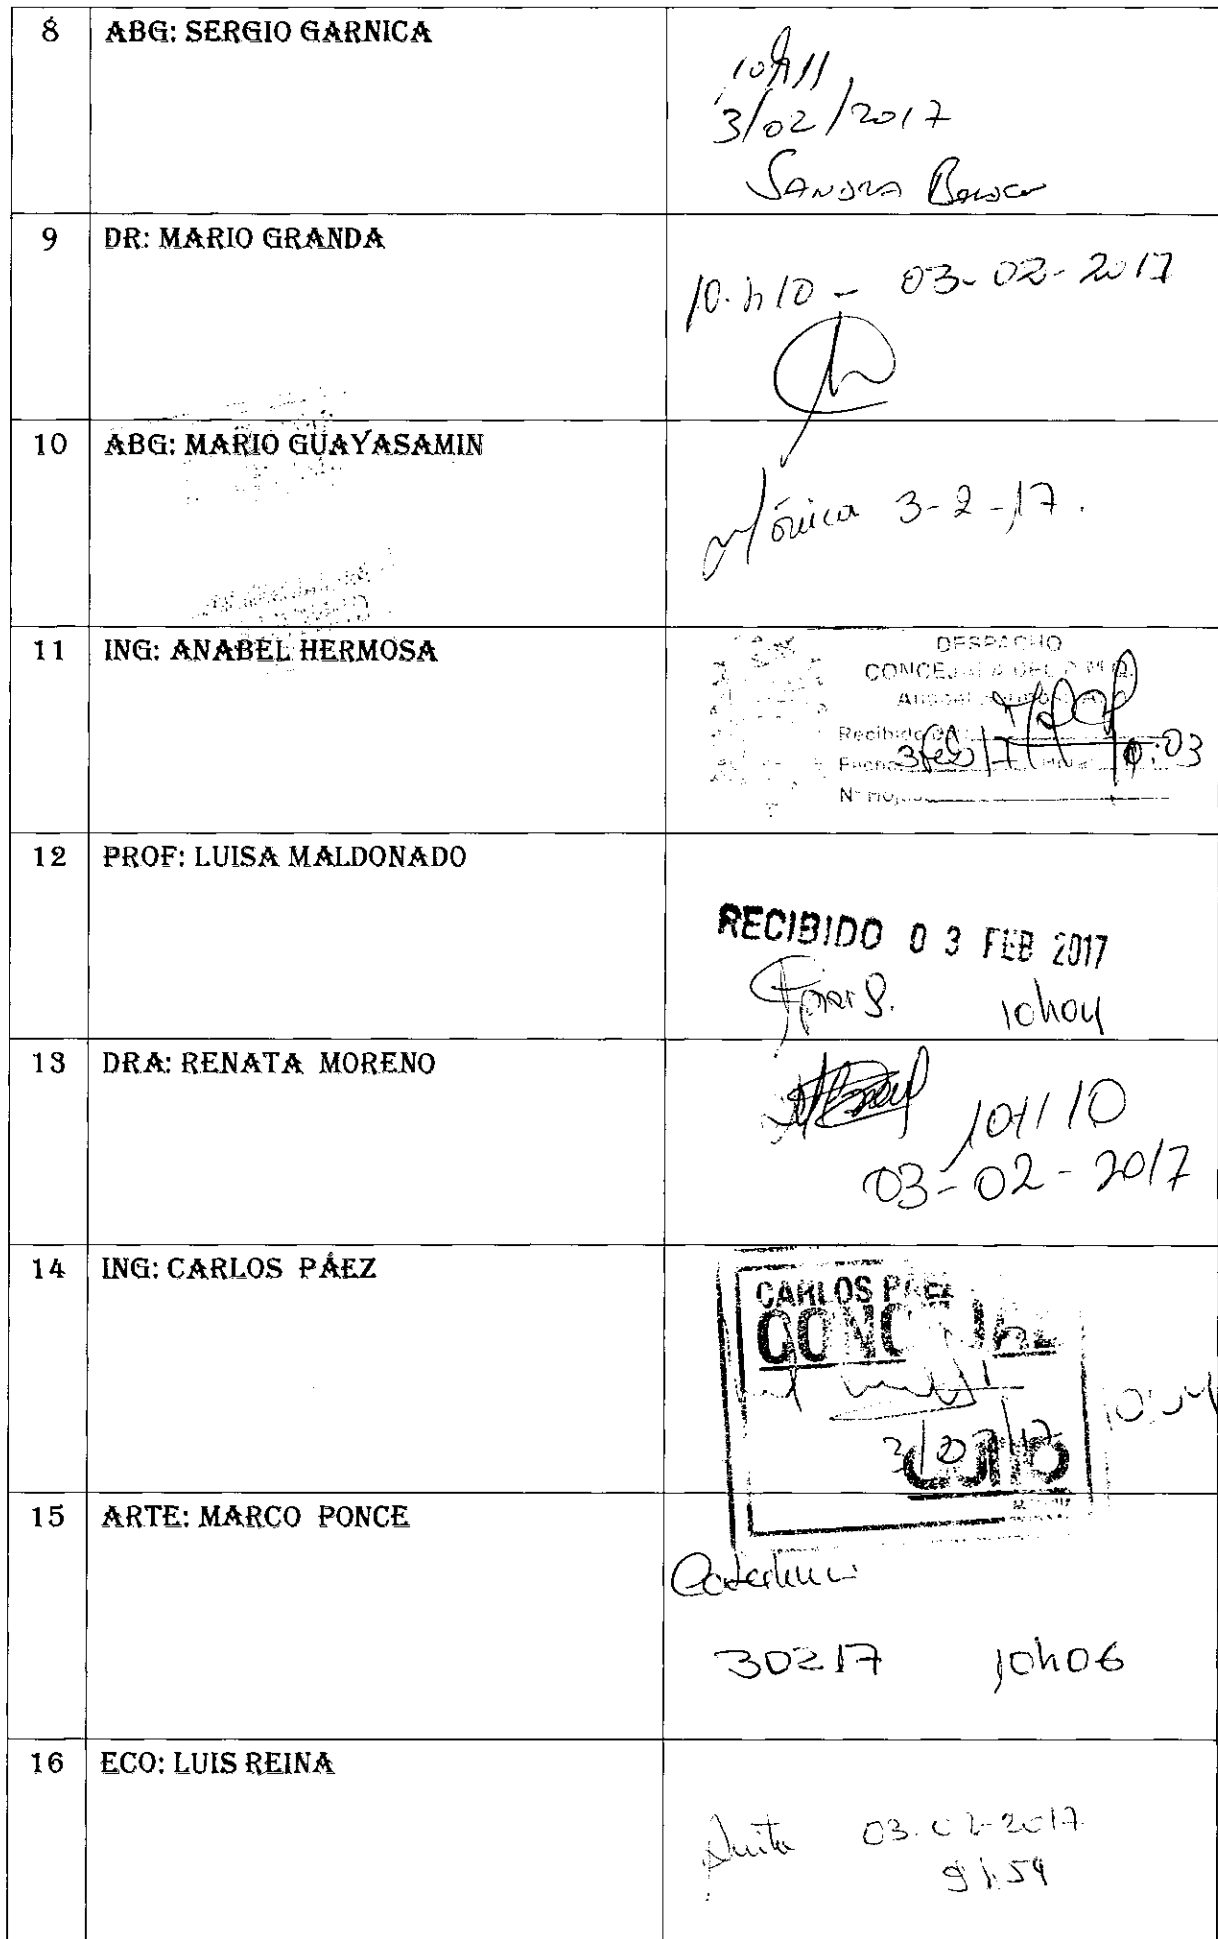 8 ABG: SERGIO GARNICA
10h11
3/02/2017
SANDRA
9 DR: MARIO GRANDA
10.h10 - 03-02-2017
10 ABG: MARIO GUAYASAMIN
Mónica 3-2-17.
11 ING: ANABEL HERMOSA
DESPACHO
Recibido
3/Feb/17 10:03
12 PROF: LUISA MALDONADO
RECIBIDO 03 FEB 2017
10h04
13 DRA: RENATA MORENO
10H10
03-02-2017
14 ING: CARLOS PÁEZ
CARLOS PÁEZ
CONCEJAL
3/02/17
QUITO
15 ARTE: MARCO PONCE
30217 10h06
16 ECO: LUIS REINA
Anita 03-02-2017
9h59